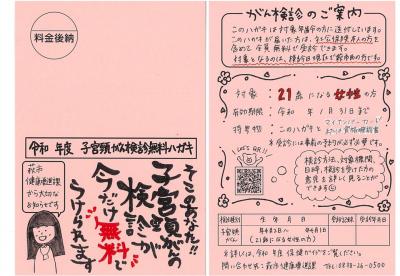 料金後納
令和 年度 子宮頸がん検診無料ハガキ
萩市
健康増進課
から大切な
お知らせです
そこのあなた!!
子宮頸がん
検診が
今だけ無料で
うけられます
がん検診のご案内
このハガキは対象年齢の方に送付しています。
このハガキが届いた方は、社会保険本人の方を
含めて全員無料で受診できます。
対象となるのは、検診日現在で萩市民の方です。
対象:21歳になる女性の方
有効期限:令和 年1月31日まで
持参物:このハガキと マイナンバーカード
または資格確認書
※受診には事前の予約が必ず必要です。
LET'S GO!!
検診方法、対象機関、
日時、検診を受けた方の
声を詳しく見ることが
できます
検診種別 生年月日
子宮頸がん 年4月2日~ 年4月1日
(21歳になる女性の方)
※詳しくは、令和 年度保健ガイドをご覧ください。
問い合わせ先:萩市健康増進課 TEL:0838-26-0500